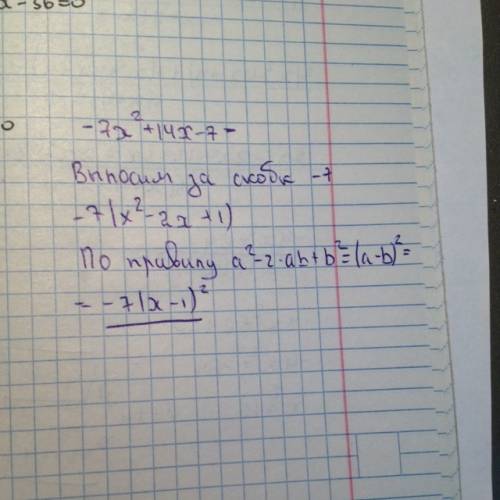 x-36=0
0
-7x²+14x-7-
Выносим за скобк -7
-7(x²-2x+1)
По правилу a²-2·ab+b²=(a-b)²=
= -7(x-1)²